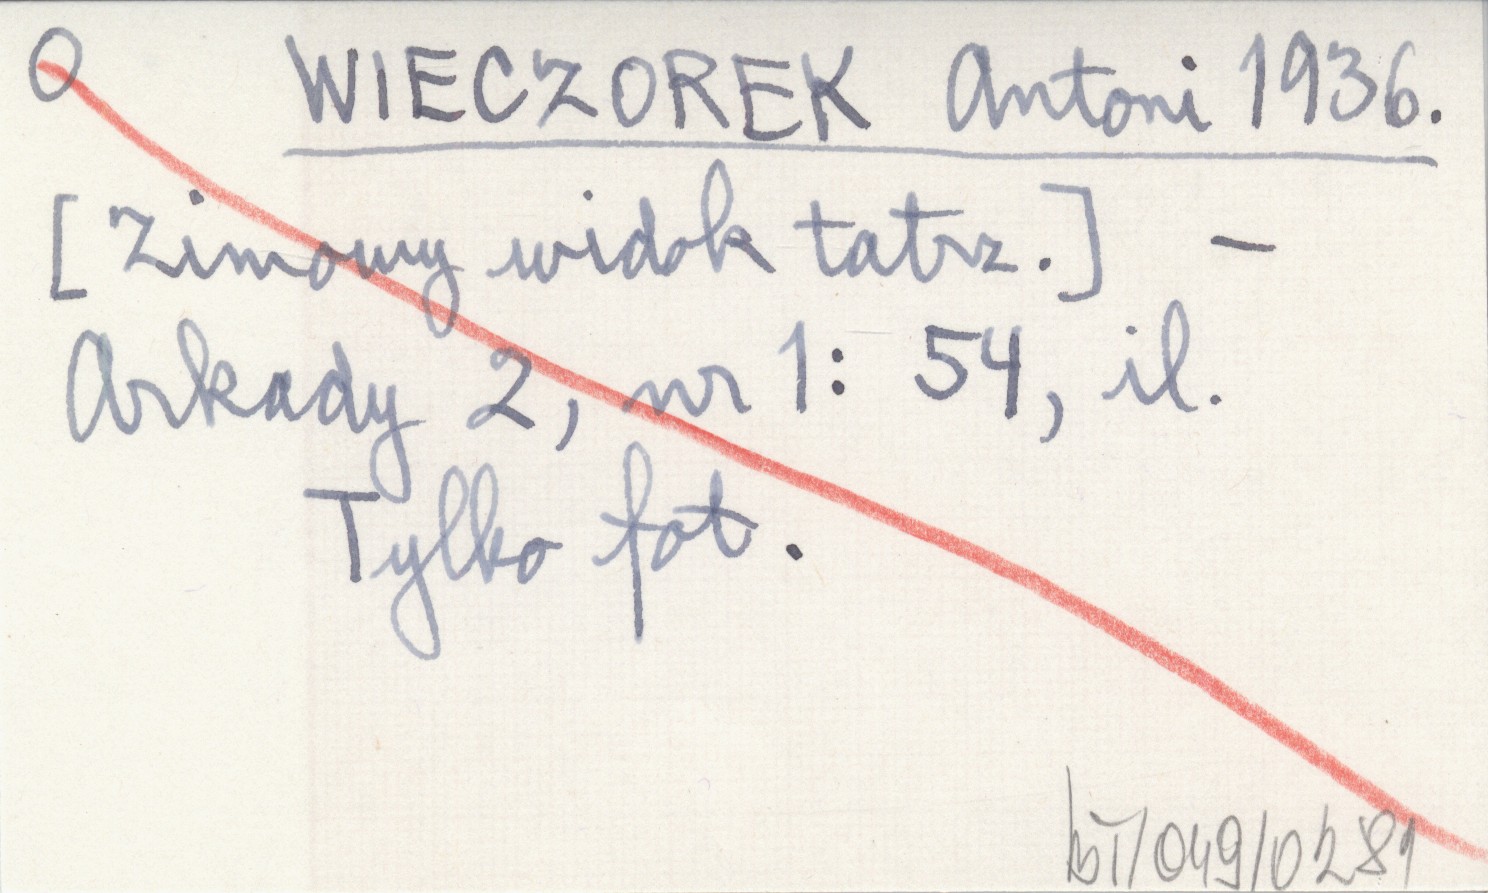 O WIECZOREK Antoni 1936.
[Zimowy widok tatrz.] —
Arkady 2, nr 1: 54, il.
Tylko fot.
bT/049/0281